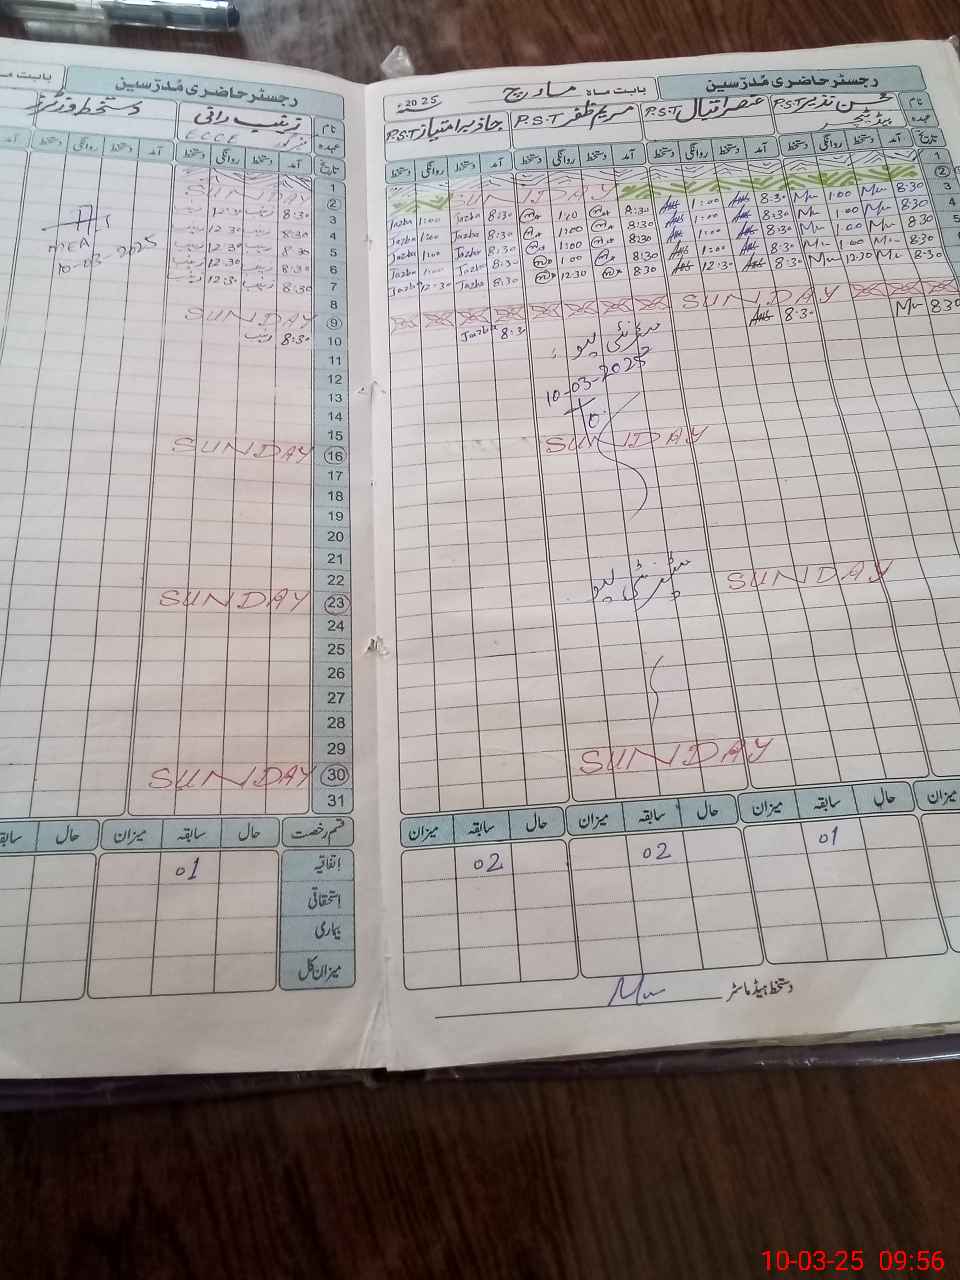 رجسٹر حاضری مُدرّسین
بابت ماہ مارچ 2025
نام محسن نذیر P.S.T عنصر اقبال P.S.T مریم ظفر P.S.T جاذبہ امتیاز P.S.T
عہدہ ہیڈ ٹیچر
تاریخ آمد دستخط روانگی دستخط آمد دستخط روانگی دستخط آمد دستخط روانگی دستخط آمد دستخط روانگی دستخط
1
2 SUNDAY
3 8:30 Mu 1:00 Mu 8:30 1:00 8:30 1:00 8:30 Jazba 1:00 Jazba
4 8:30 Mu 1:00 Mu 8:30 1:00 8:30 1:00 8:30 Jazba 1:00 Jazba
5 8:30 Mu 1:00 Mu 8:30 1:00 8:30 1:00 8:30 Jazba 1:00 Jazba
8:30 Mu 1:00 Mu 8:30 1:00 8:30 1:00 8:30 Jazba 1:00 Jazba
8:30 Mu 12:30 Mu 8:30 12:30 8:30 12:30 8:30 Jazba 12:30 Jazba
SUNDAY
8:30 Mu 8:30 8:30 Jazba
10-03-2025
SUNDAY
SUNDAY
SUNDAY
میزان حال سابقہ میزان حال سابقہ میزان حال سابقہ میزان
01 02 02
دستخط ہیڈ ماسٹر Mu
رجسٹر حاضری مُدرّسین
بابت
نام زینب رانی دستخط وزیٹرز
عہدہ ECCE
تاریخ آمد دستخط روانگی دستخط آمد دستخط روانگی دستخط
1
2 SUNDAY
3 8:30 زینب 12:30 زینب
4 8:30 زینب 12:30 زینب
5 8:30 زینب 12:30 زینب
6 8:30 زینب 12:30 زینب
7 8:30 زینب 12:30 زینب
MEA
10-03-2025
8
9 SUNDAY
10 8:30 زینب
11
12
13
14
15
16 SUNDAY
17
18
19
20
21
22
23 SUNDAY
24
25
26
27
28
29
30 SUNDAY
31
قسم رخصت حال سابقہ میزان حال سابقہ
اتفاقیہ 01
استحقاقی
بیماری
میزان کل
10-03-25 09:56